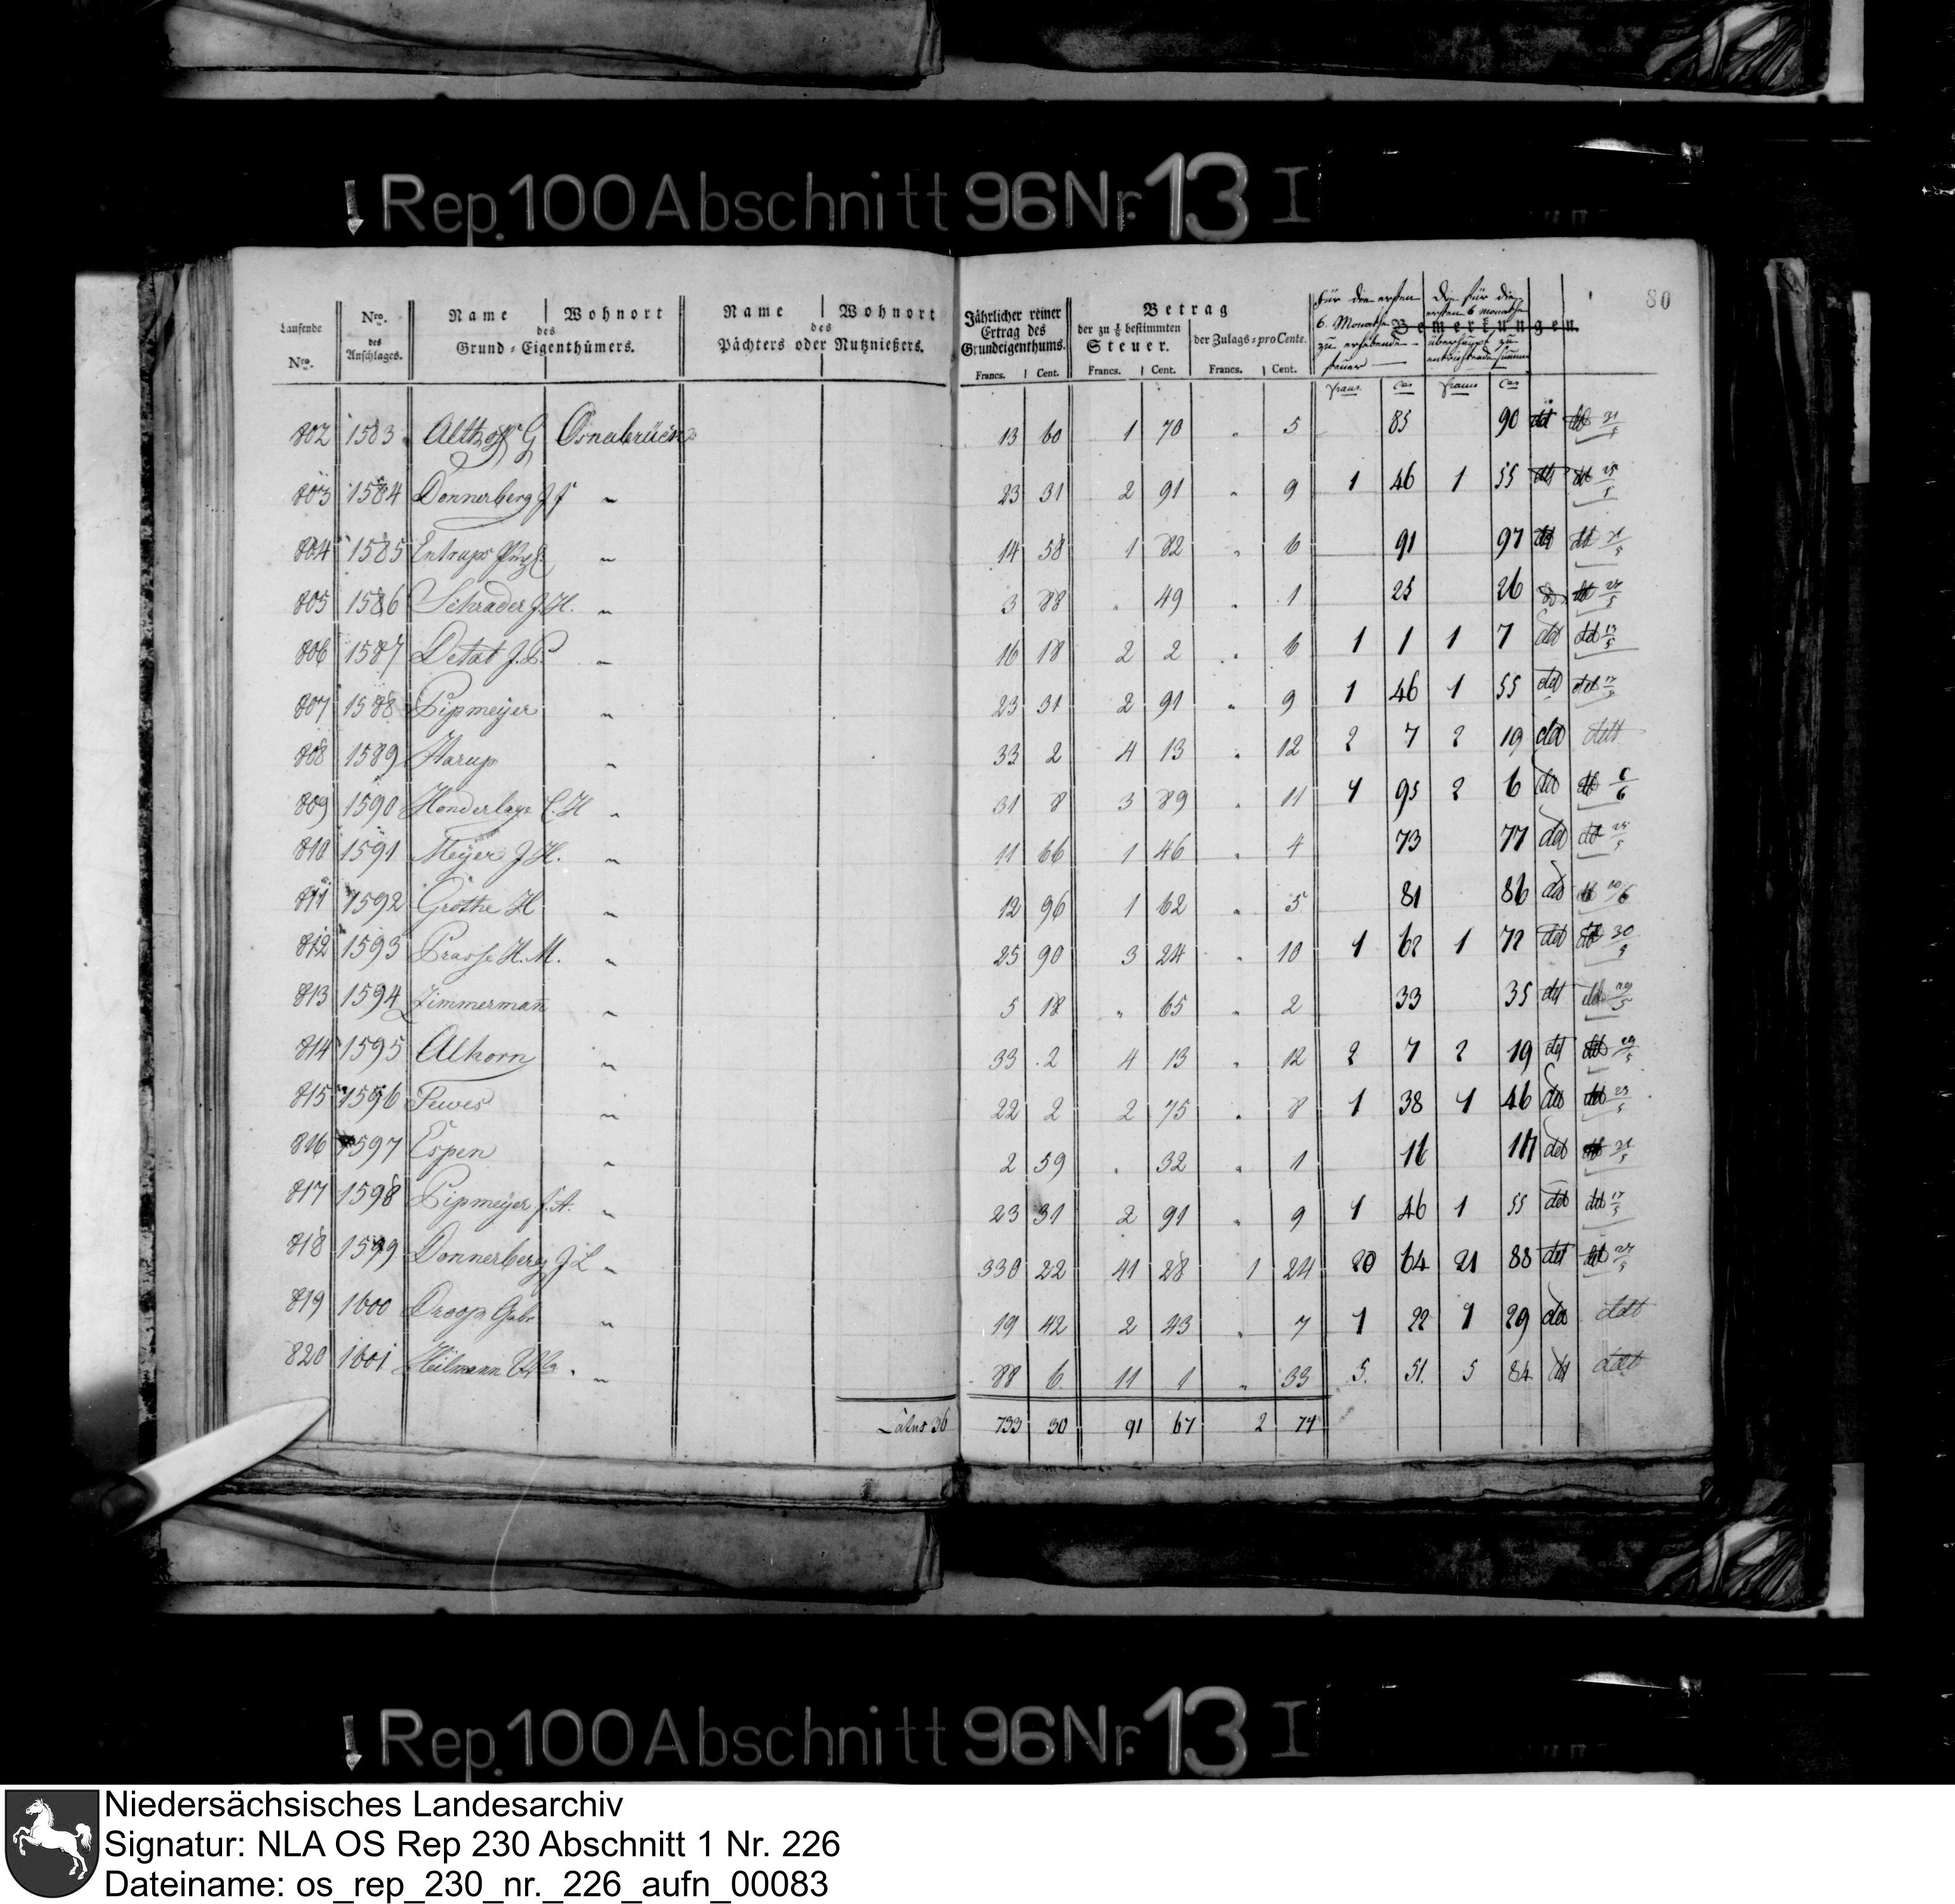 Rep. 100 Abschnitt 96 Nr. 13 I
80
Laufende Nro.
Nro. des Anschlages.
Name | Wohnort
des
Grund-Eigenthümers.
Name | Wohnort
des
Pächters oder Nutznießers.
Jährlicher reiner Ertrag des Grundeigenthums.
Francs. | Cent.
Betrag
der zu 1/8 bestimmten Steuer.
Francs. | Cent.
der Zulags-pro Cente.
Francs. | Cent.
Für die ersten 6. Monathe zu erhebende Steuer
Die für die ersten 6 Monathe überhaupt zu entrichtende Summe
Bemerkungen.
francs ces francs ces
802 1583 Althoff G Osnabrück 13 60 1 70 " 5 85 90 det det 31/5
803 1584 Donnerberg J F " 23 31 2 91 " 9 1 46 1 55 det det 25/5
804 1585 Entrups " 14 58 1 82 " 6 91 97 det det 21/5
805 1586 Schrader J.H. " 3 88 " 49 " 1 25 26 det 27/5
806 1587 Detat J. " 16 18 2 2 " 6 1 1 1 7 det det 13/5
807 1588 Pipmeÿer " 23 31 2 91 " 9 1 46 1 55 det det 17/5
808 1589 Harup " 33 2 4 13 " 12 2 7 2 19 det dett
809 1590 Honderlage C.H " 31 8 3 89 " 11 1 95 2 6 det det 6/6
810 1591 Meÿer J.H. " 11 66 1 46 " 4 73 77 det det 25/5
811 1592 Grothe H " 12 96 1 62 " 5 81 86 det det 10/6
812 1593 Prasse H.M. " 25 90 3 24 " 10 1 62 1 72 det det 30/5
813 1594 Zimmermañ " 5 18 " 65 " 2 33 35 det det 29/5
814 1595 Alhorn " 33 2 4 13 " 12 2 7 2 19 det det 29/5
815 1596 Tewes " 22 2 2 75 " 8 1 38 1 46 det det 23/5
816 1597 Espen " 2 59 " 32 " 1 16 17 det det 21/5
817 1598 Pipmeÿer J.A. " 23 31 2 91 " 9 1 46 1 55 det det 17/5
818 1599 Donnerberg J L " 330 22 41 28 1 24 20 64 21 88 det det 27/5
819 1600 Droop Gabr " 19 42 2 43 " 7 1 22 1 29 det dett
820 1601 Heilmann " 88 6 11 1 " 33 5. 51. 5 84 det dett
Latus 36 733 30 91 67 2 74
Rep. 100 Abschnitt 96 Nr. 13 I
Niedersächsisches Landesarchiv
Signatur: NLA OS Rep 230 Abschnitt 1 Nr. 226
Dateiname: os_rep_230_nr._226_aufn_00083